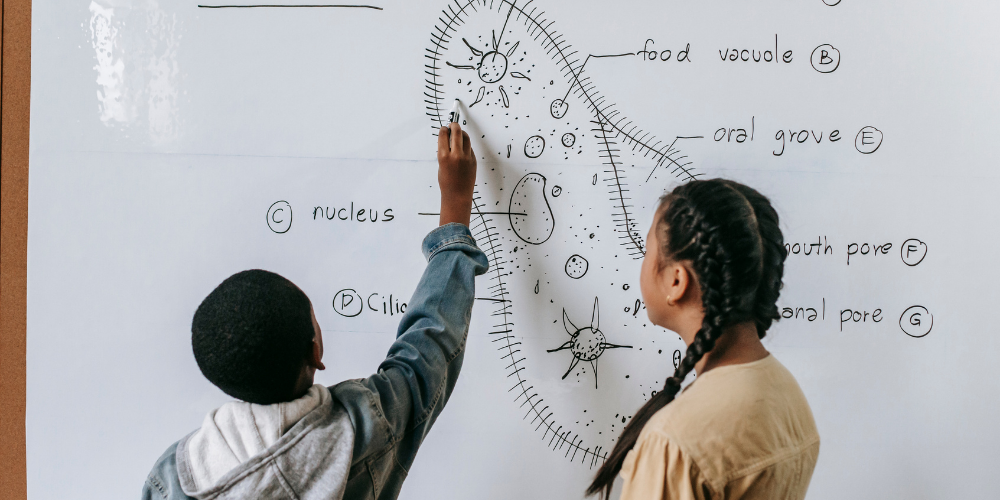 food vacuole B
oral grove E
C nucleus
pore F
D Cilia
anal pore G